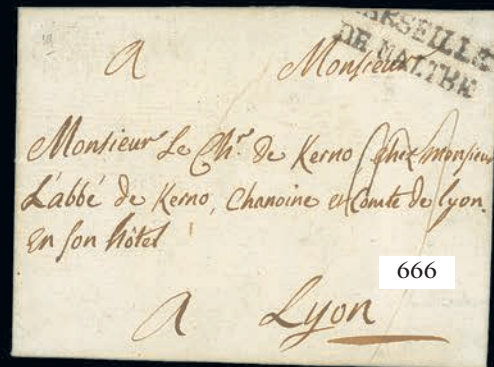 MARSEILLE
DE MALTHE
A Monsieur
Monsieur Le Chr. de Kerno chez monsieur
L'abbé de Kerno, Chanoine et Comte de lyon.
En son hôtel
666
A Lyon